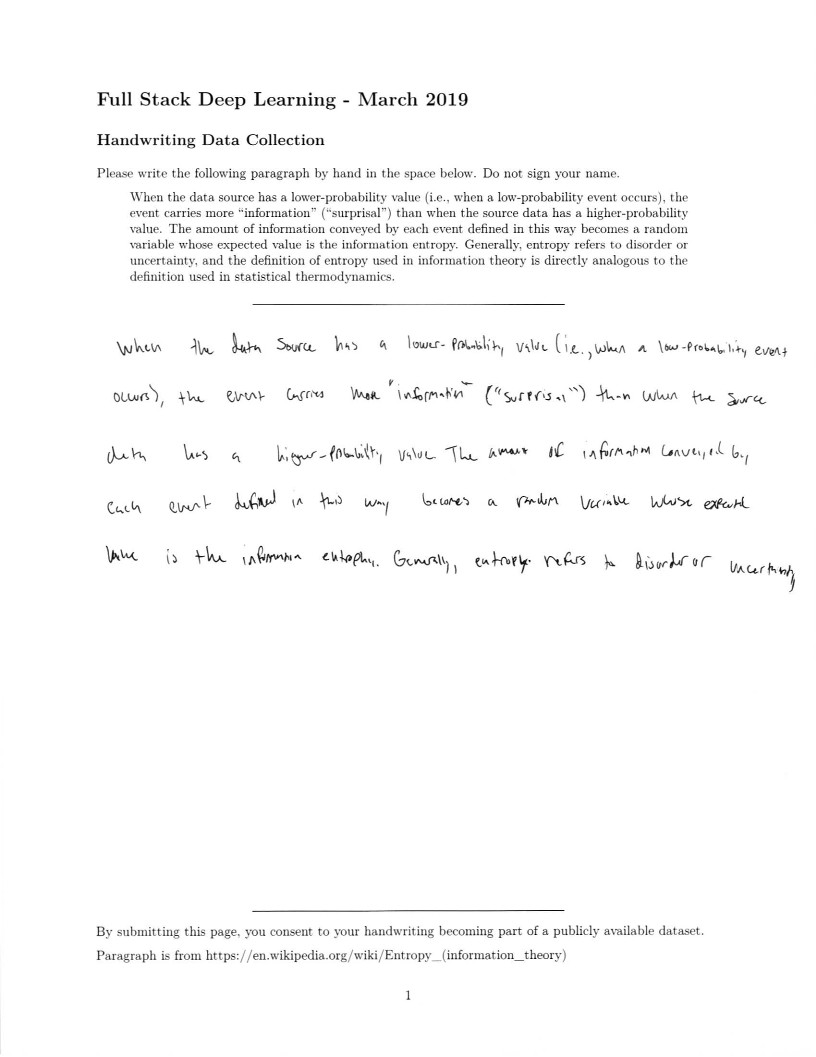 Full Stack Deep Learning - March 2019
Handwriting Data Collection
Please write the following paragraph by hand in the space below. Do not sign your name.
When the data source has a lower-probability value (i.e., when a low-probability event occurs), the
event carries more “information” (“surprisal”) than when the source data has a higher-probability
value. The amount of information conveyed by each event defined in this way becomes a random
variable whose expected value is the information entropy. Generally, entropy refers to disorder or
uncertainty, and the definition of entropy used in information theory is directly analogous to the
definition used in statistical thermodynamics.
When the data Source has a lower-Probability value (i.e., when a low-probability event
occurs), the event carries more "information" ("surprisal") than when the source
data has a higher-probability value. The amount of information conveyed by
each event defined in this way becomes a random variable whose expected
value is the information entrophy. Generally, entropy refers to disorder or uncertainty
By submitting this page, you consent to your handwriting becoming part of a publicly available dataset.
Paragraph is from https://en.wikipedia.org/wiki/Entropy_(information_theory)
1